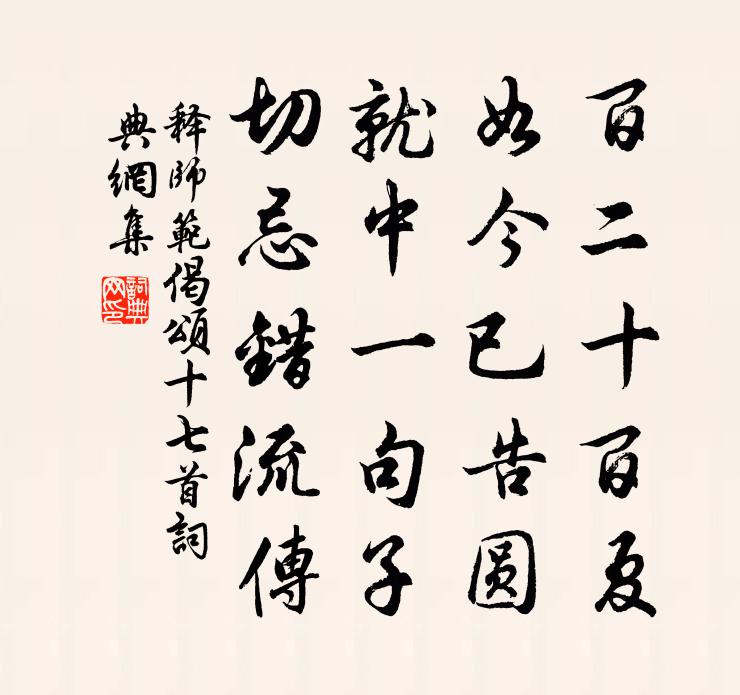 百二十百夏
如今已告圆
就中一句子
切忌錯流傳
释師範偈頌十七首詞
典網集
詞典网印